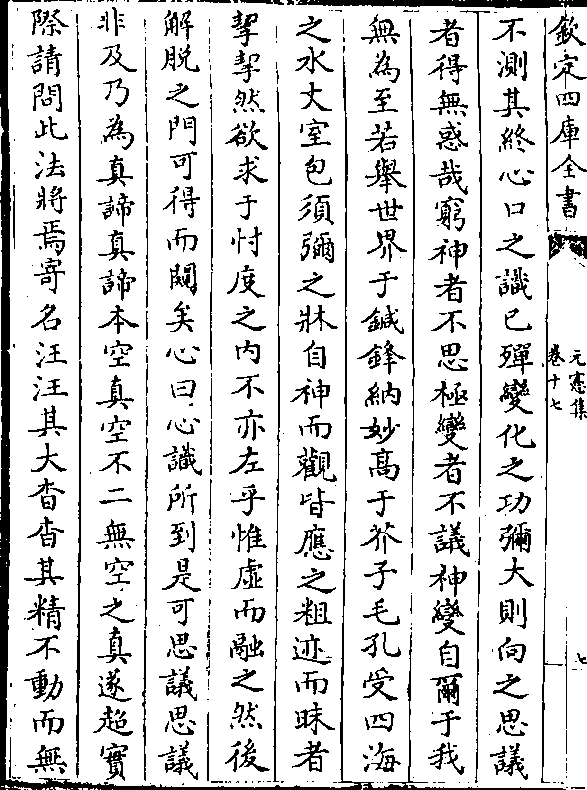 欽定四庫全書
元憲集
卷十七
七
不測其終心口之議已殫變化之功彌大則向之思議
者得無惑哉窮神者不思極變者不議神變自爾于我
無為至若舉世界于鍼鋒納妙高于芥子毛孔受四海
之水丈室包須彌之牀自神而觀皆應之粗迹而昧者
挈挈然欲求于忖度之内不亦左乎惟虚而融之然後
解脱之門可得而闚矣心曰心識所到是可思議思議
非及乃為真諦真諦本空真空不二無空之真遂超實
際請問此法將焉寄名汪汪其大杳杳其精不動而無